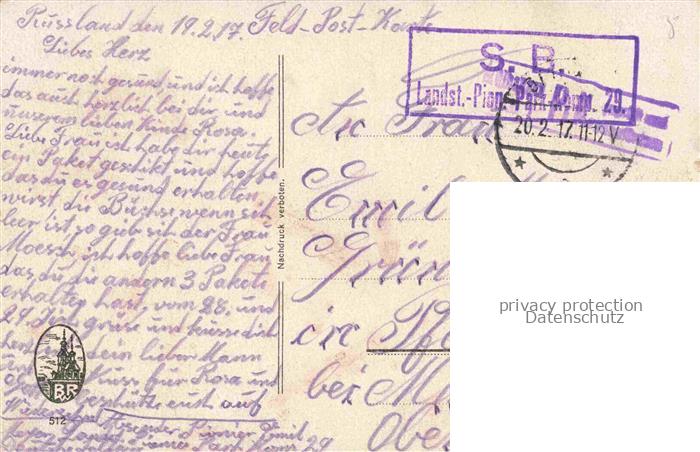 Russland den 19.2.17. Feld-Post-Karte
Liebes Herz
immer noch gesund und ich hoffe
das auch herzlich bei dir und
unserem lieben Kinde Rosa.
Liebe Frau ich habe dir heute
ein Paket geschikt und hoffe
das du es gesund erhalten
wirst die Büchse wenn sie
leer ist so gieb sie der Frau
Moesch ich hoffe liebe Frau
das du die andern 3 Pakete
erhalten hast vom 28. und
29. Ich grüse und küsse dich
dein lieber Mann
Kuss für Rosa und
euch auf
Pionier Emil
Park Kom 29
BR
512
Nachdruck verboten.
S. B.
Landst.-Pion.-Park-Komp. 29.
20.2.17.11-12V
An Frau
Emil
in
bei
privacy protection
Datenschutz